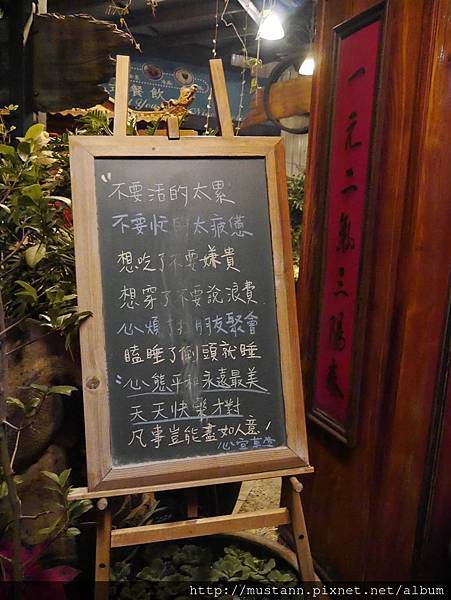 餐飲
"不要活的太累
不要忙的太疲憊
想吃了不要嫌貴
想穿了不要說浪費
心煩了找朋友聚會
瞌睡了倒頭就睡
心態平和永遠最美
天天快樂才對
凡事豈能盡如人意!
一元二氣三陽泰
http://mustann.pixnet.net/album